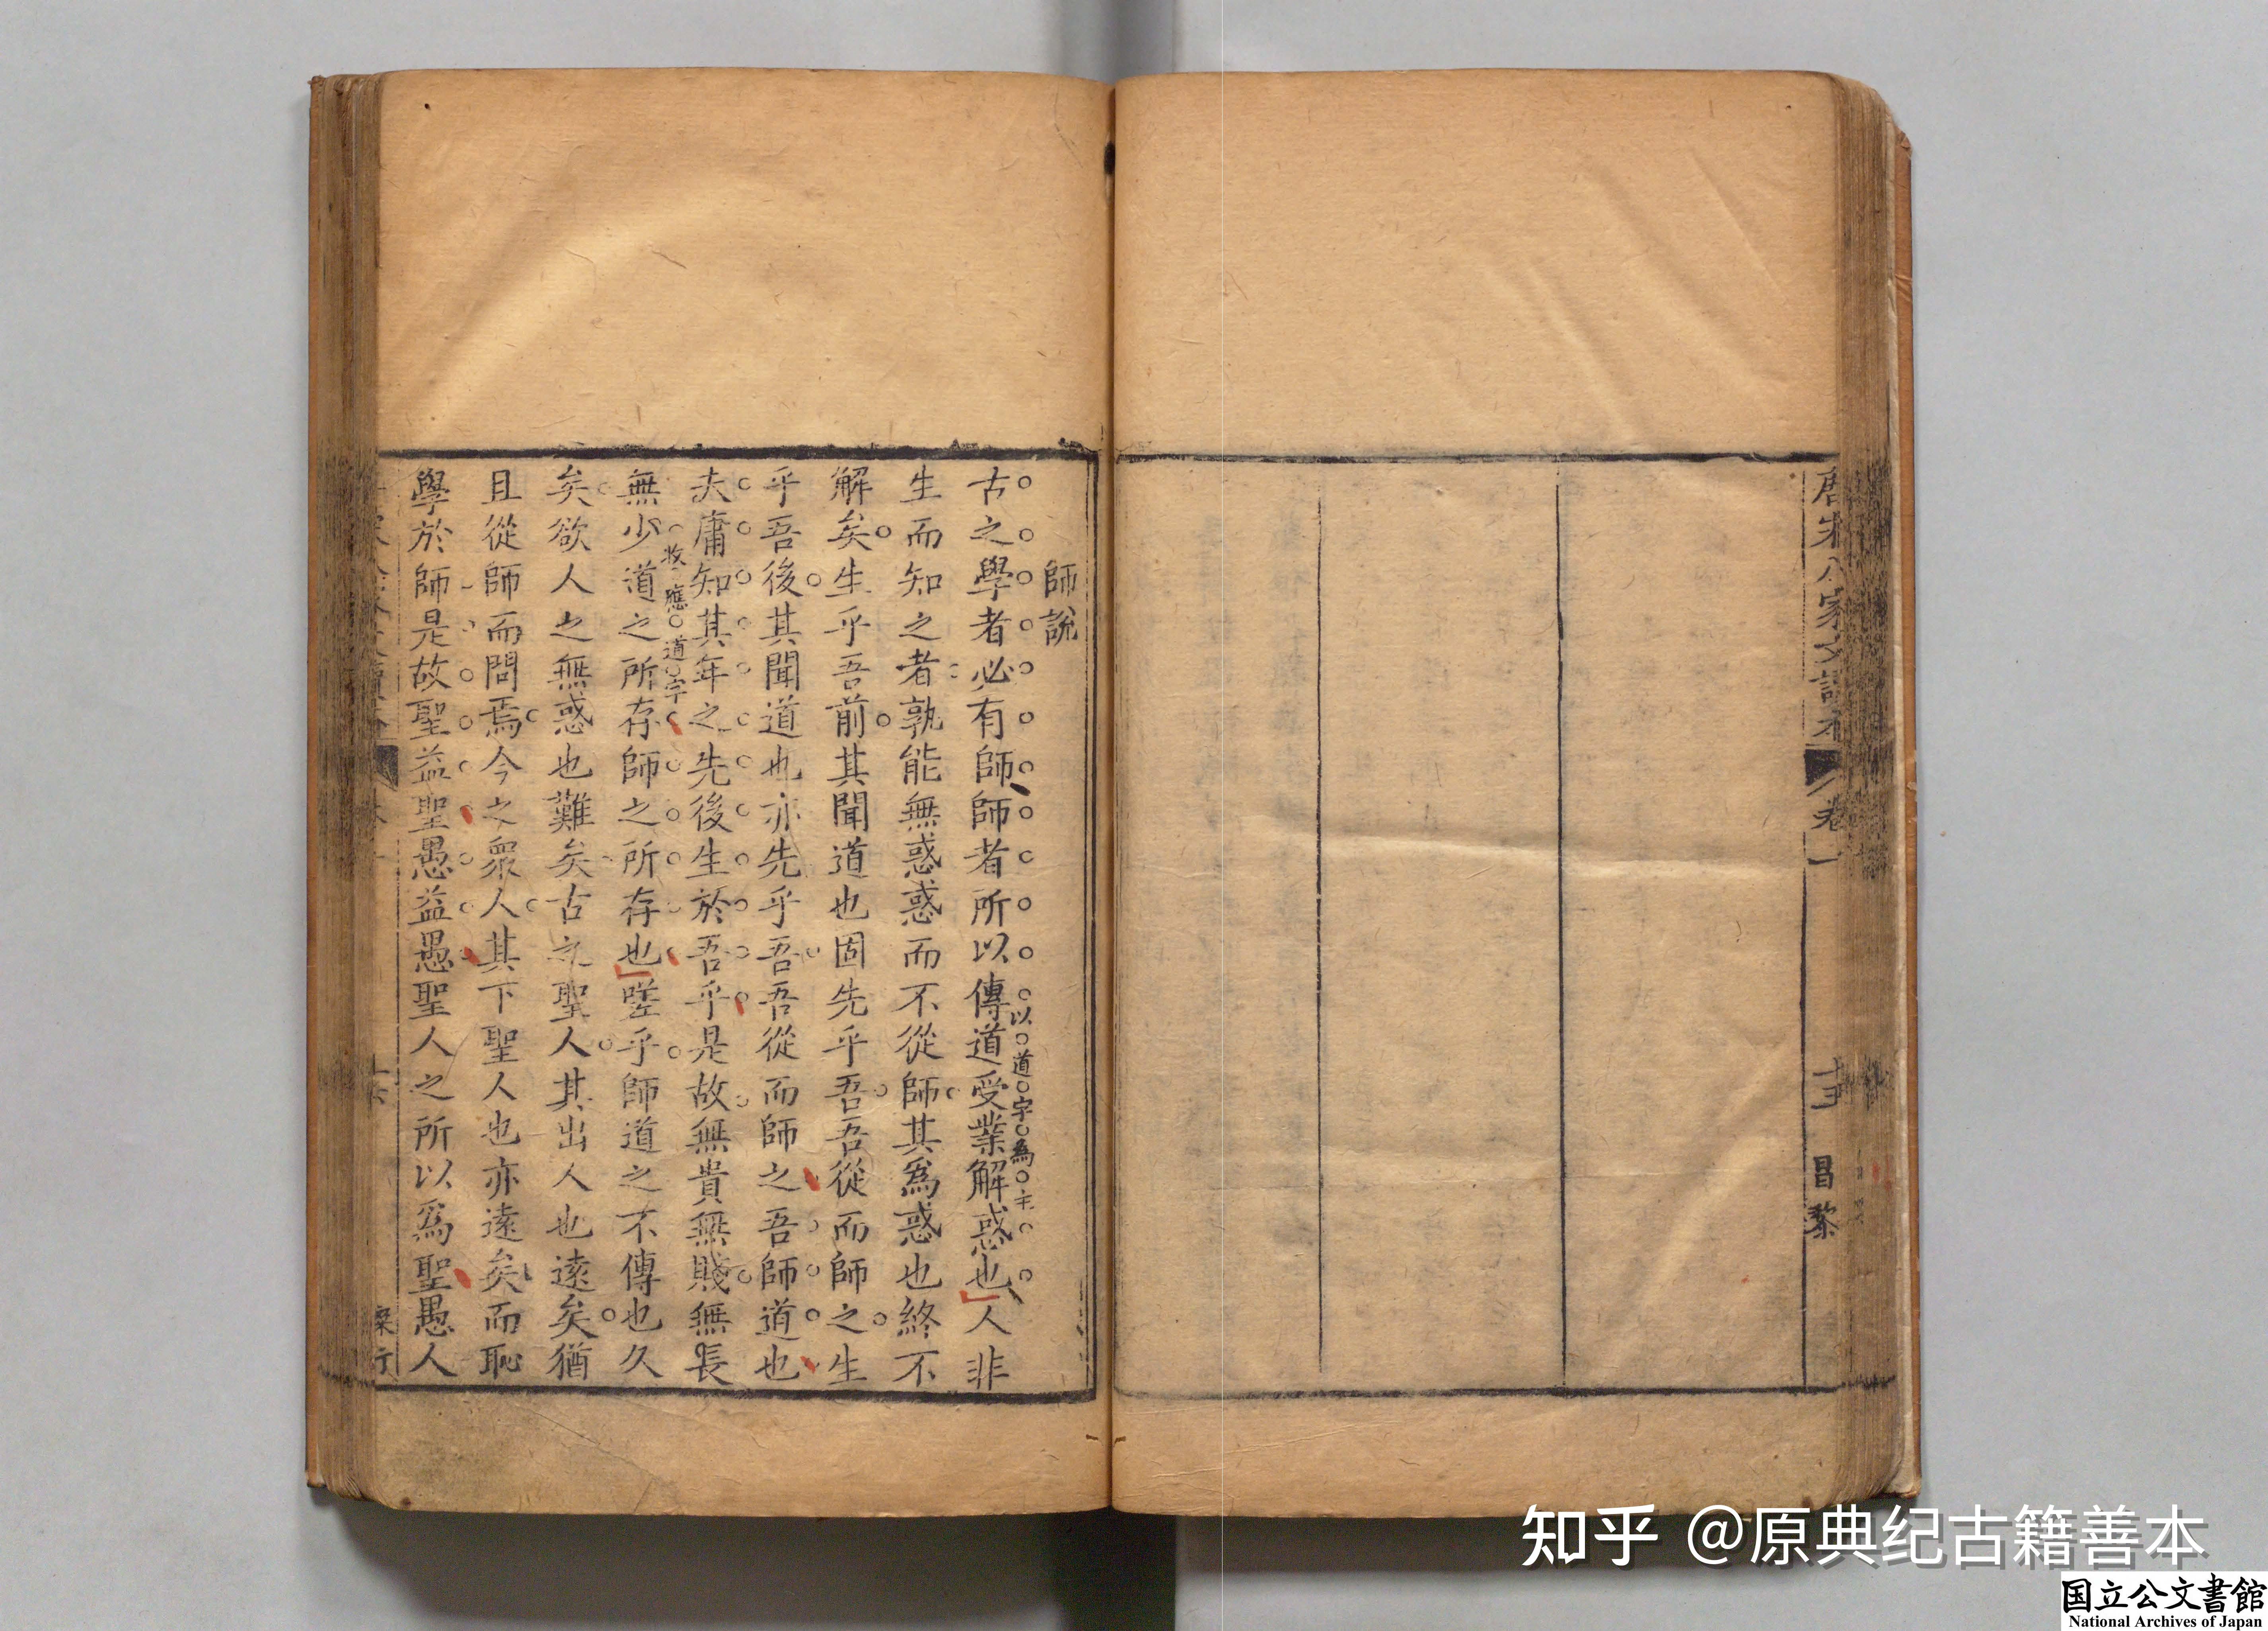 唐宋八家文讀本
卷一
十五
昌黎
師說
古之學者必有師師者所以傳道受業解惑也人非
以道字為主
生而知之者孰能無惑惑而不從師其爲惑也終不
解矣生乎吾前其聞道也固先乎吾吾從而師之生
乎吾後其聞道也亦先乎吾吾從而師之吾師道也
夫庸知其年之先後生於吾乎是故無貴無賤無長
收應道字
無少道之所存師之所存也嗟乎師道之不傳也久
矣欲人之無惑也難矣古之聖人其出人也遠矣猶
且從師而問焉今之眾人其下聖人也亦遠矣而恥
學於師是故聖益聖愚益愚聖人之所以爲聖愚人
知乎 @原典纪古籍善本
国立公文書館
National Archives of Japan